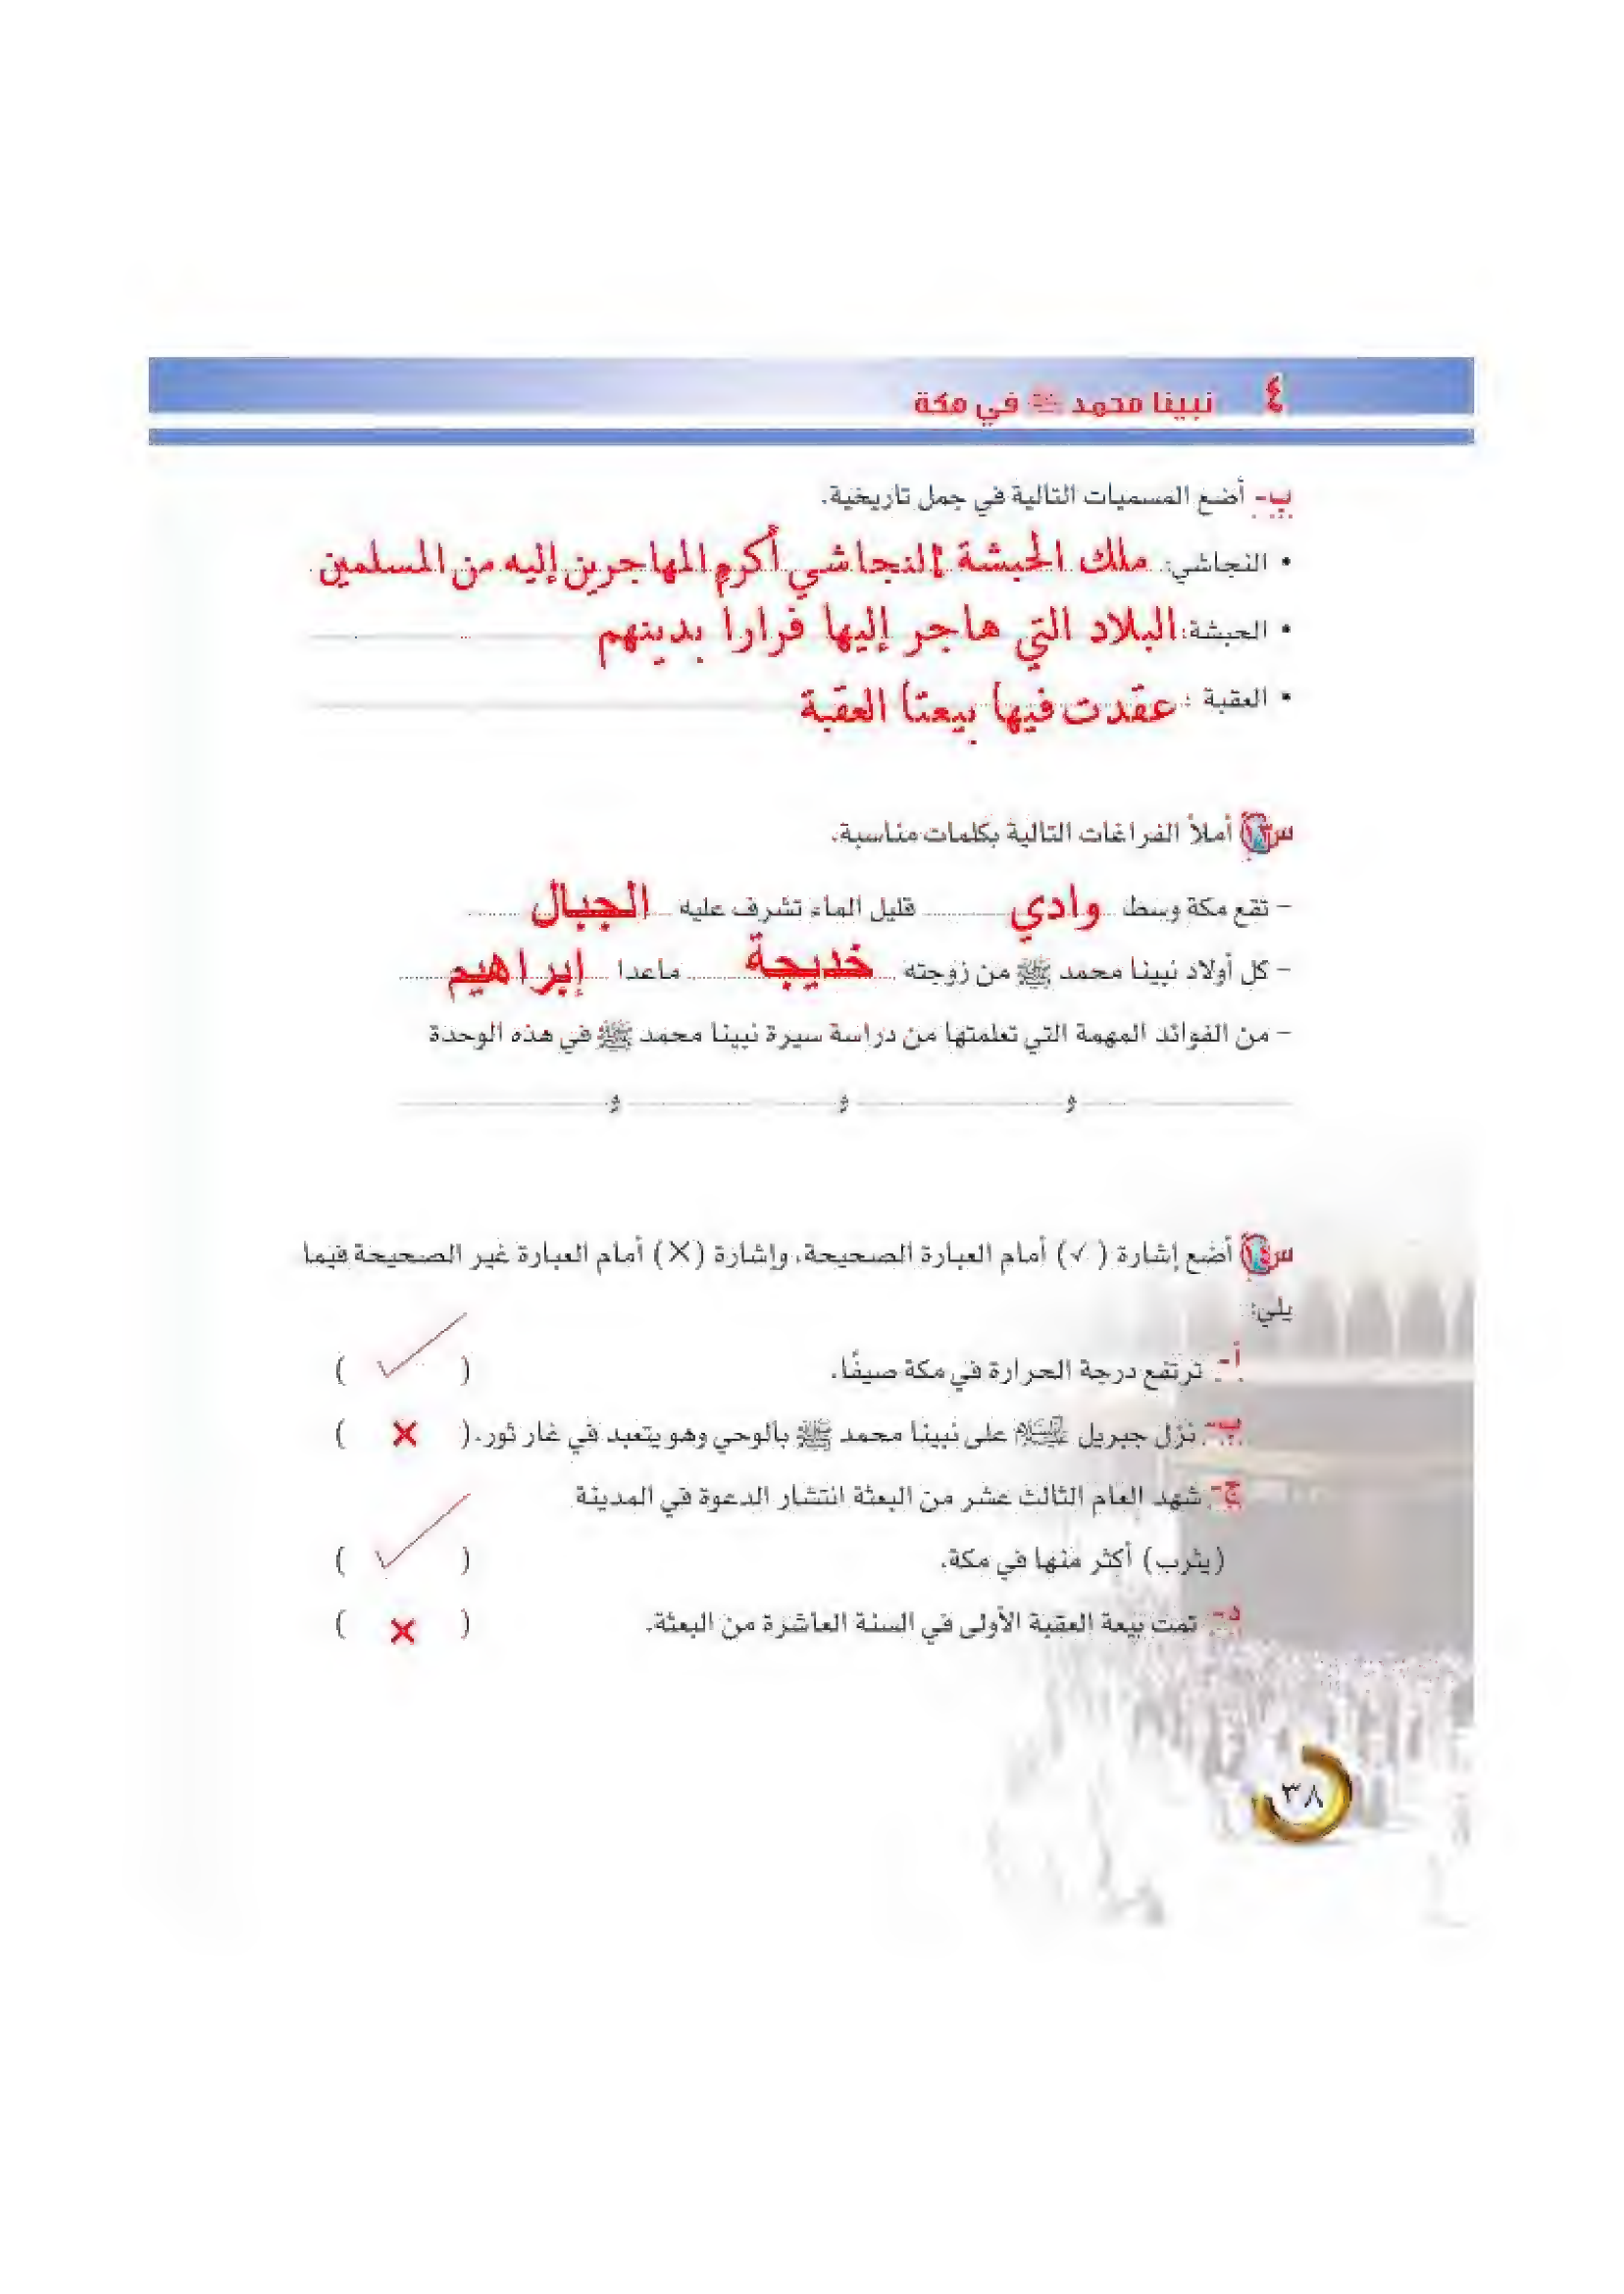 ٤ نبينا محمد ﷺ في مكة
ب- أضع المسميات التالية في جمل تاريخية.
• النجاشي: ملك الحبشة النجاشي أكرم المهاجرين إليه من المسلمين
• الحبشة: البلاد التي هاجر إليها فرارا بدينهم
• العقبة : عقدت فيها بيعتا العقبة
س١٣ أملأ الفراغات التالية بكلمات مناسبة.
- تقع مكة وسط وادي قليل الماء تشرف عليه الجبال
- كل أولاد نبينا محمد ﷺ من زوجته خديجة ماعدا إبراهيم
- من الفوائد المهمة التي تعلمتها من دراسة سيرة نبينا محمد ﷺ في هذه الوحدة
و و و
س١٤ أضع إشارة (✓) أمام العبارة الصحيحة، وإشارة (✕) أمام العبارة غير الصحيحة فيما
يلي:
أ- ترتفع درجة الحرارة في مكة صيفًا. ( ✓ )
ب- نزل جبريل عليه السلام على نبينا محمد ﷺ بالوحي وهو يتعبد في غار ثور. ( ✕ )
ج- شهد العام الثالث عشر من البعثة انتشار الدعوة في المدينة
(يثرب) أكثر منها في مكة. ( ✓ )
د- تمت بيعة العقبة الأولى في السنة العاشرة من البعثة. ( ✕ )
٣٨